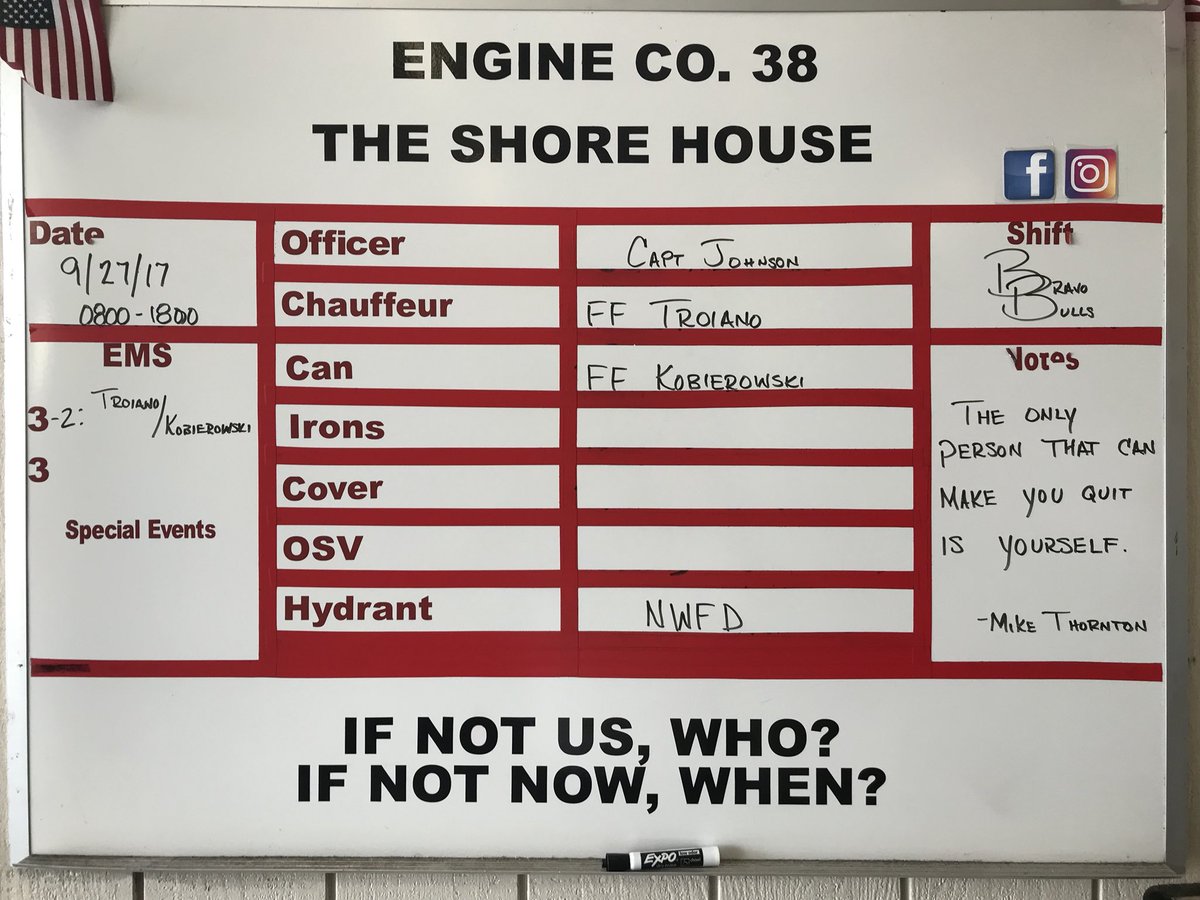 ENGINE CO. 38
THE SHORE HOUSE
Date
9/27/17
0800-1800
EMS
3-2: TROIANO/KOBIEROWSKI
3
Special Events
Officer CAPT JOHNSON
Chauffeur FF TROIANO
Can FF KOBIEROWSKI
Irons
Cover
OSV
Hydrant NWFD
Shift
BRAVO
BULLS
Votes
THE ONLY
PERSON THAT CAN
MAKE YOU QUIT
IS YOURSELF.
-MIKE THORNTON
IF NOT US, WHO?
IF NOT NOW, WHEN?
EXPO